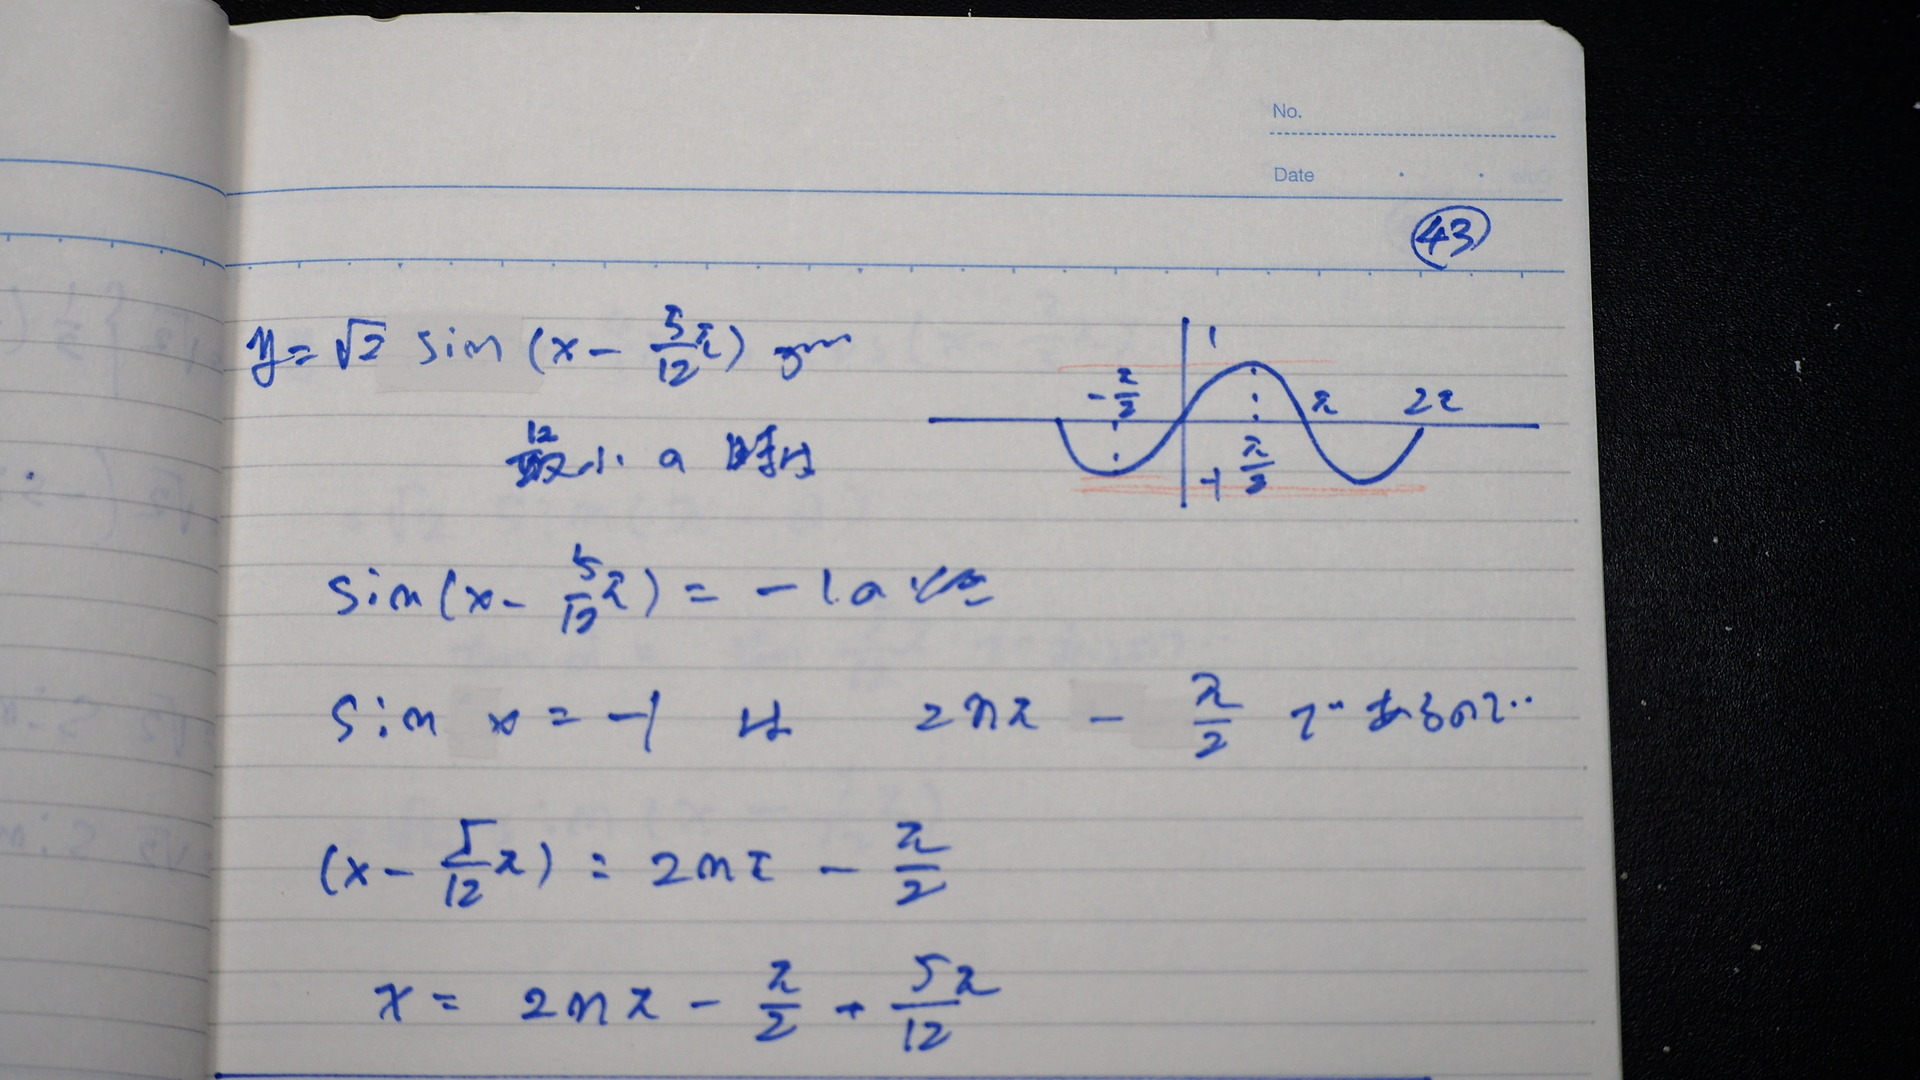 No.
Date
43
y = √2 sin (x - 5/12 π)
最小の時は
1
-π/2 π 2π
π/2
-1
sin(x - 5/12 π) = -1 の
sin x = -1 は 2nπ - π/2 であるので
(x - 5/12 π) = 2nπ - π/2
x = 2nπ - π/2 + 5π/12